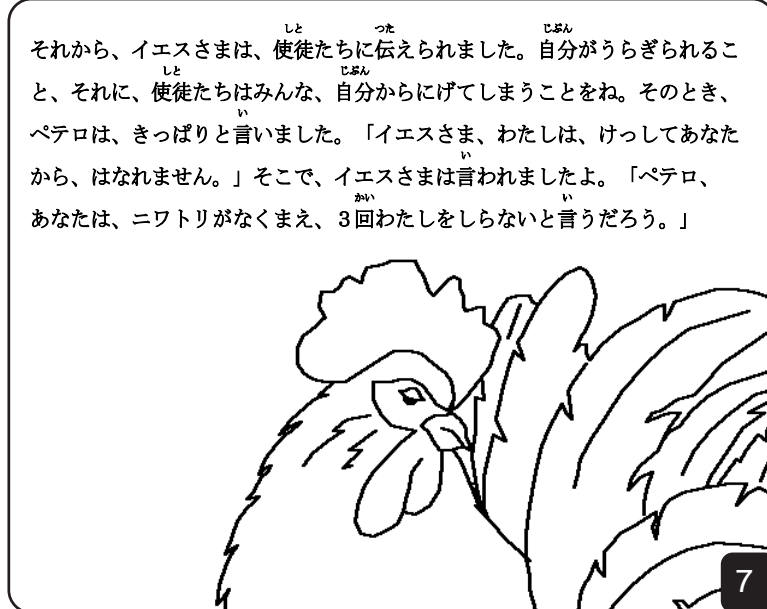 それから、イエスさまは、使徒たちに伝えられました。自分がうらぎられるこ
と、それに、使徒たちはみんな、自分からにげてしまうことをね。そのとき、
ペテロは、きっぱりと言いました。「イエスさま、わたしは、けっしてあなた
から、はなれません。」そこで、イエスさまは言われましたよ。「ペテロ、
あなたは、ニワトリがなくまえ、３回わたしをしらないと言うだろう。」
7